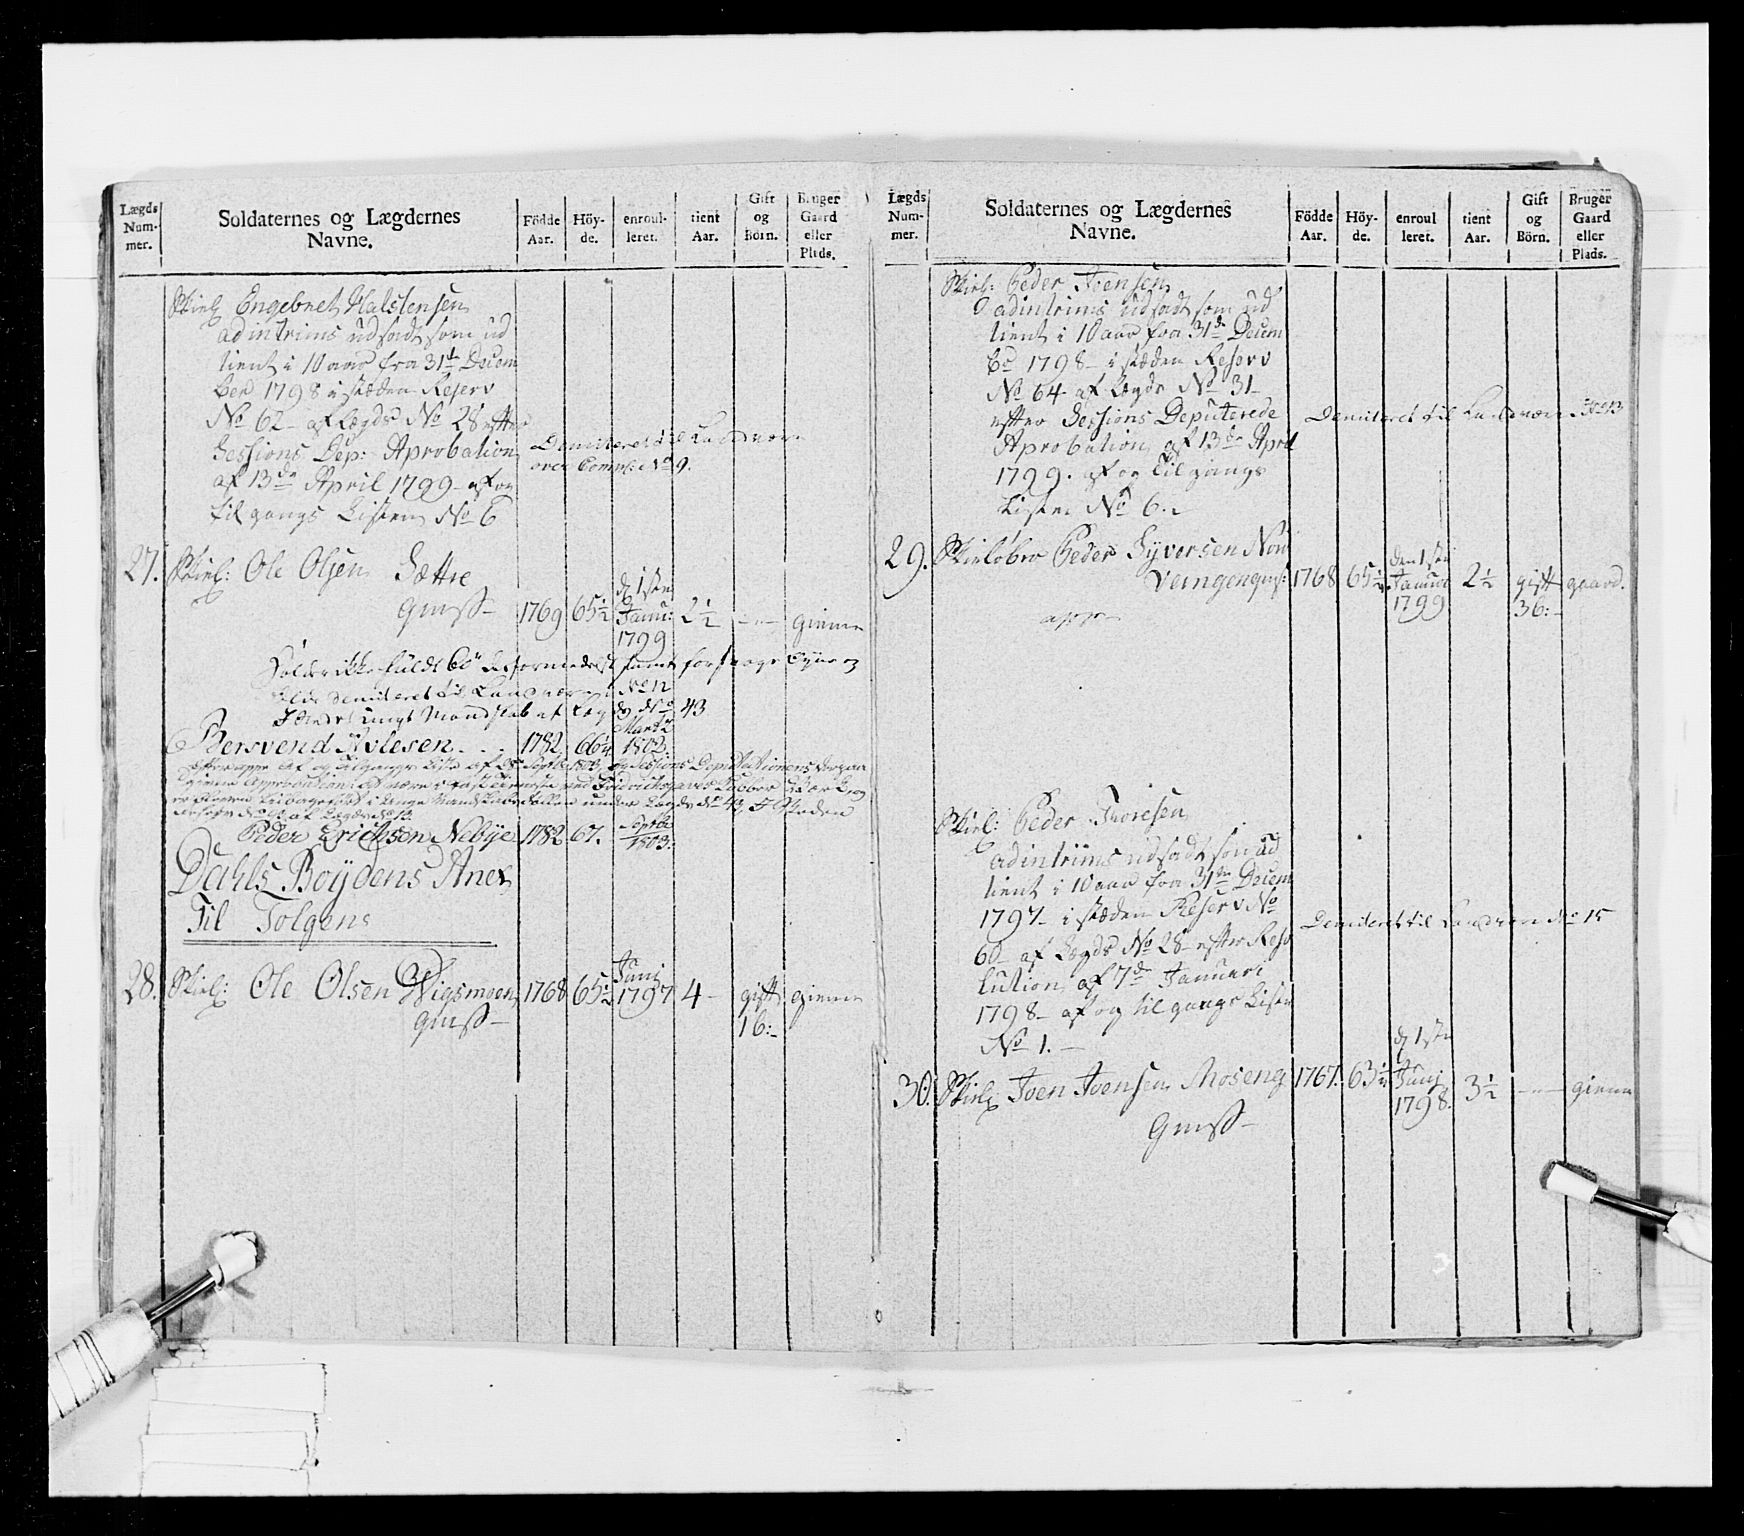 Lægds Num-mer.
Soldaternes og Lægdernes Navne.
Födde Aar.
Höy-de.
enroul-leret.
tient Aar.
Gift og Börn.
Bruger Gaard eller Plads.
Skiel: Engebret Halstensen
adintrims udsadt som ud
tient i 10 aar fra 31te Decem
ber 1798 i stæden Reserv
No 62 af Lægds No 28 efter
Sessions Dep: Aprobation
af 13de April 1799 af og
til gangs Listen No 6
Demiteret til Landværn
over Comp: No 9.
27. Skiel: Ole Olsen Sættre
Gmss 1769 65½ d 1sten Janu: 1799 2½ — giemme
Holder ikke fuldt 60"
demiteret til Landværn No 12
ungt Mandskab af Lægd No 43
Bersvend Avlesen 1782. 66¼ Martz 1802.
Peder Erichsen Nebye 1782. 67. Septbr 1803.
Dahls Boydens Anex
Til Tolgens
28. Skiel: Ole Olsen Vigsmoen 1768 65½ Junj 1797 4 — gift 1 b: giemme
Gmss
Lægds Num-mer.
Soldaternes og Lægdernes Navne.
Födde Aar.
Höy-de.
enroul leret.
tient Aar.
Gift og Börn.
Bruger Gaard eller Plads.
Skiel: Peder Joensen
adintrims udsadt som ud
tient i 10 aar fra 31de Decem
br 1798 i stæden Reserv
No 64 af Lægds No 31
efter Sessions Deputerede
Aprobation af 13de April
1799. af og til gangs
Listen No 6.
Demiteret til Landværn No 13
29. Skieløber Peder Syversen Nor
Vemgengms: 1768 65½ den 1sten Januar 1799 2½ gift 3 b: gaard.
Skiel: Peder Thoresen
adintrims udsadt som ud
tient i 10 aar fra 31te Decem
1797 i stæden Reserv No
60 af Lægds No 28 efter Reso
lution af 7de Januari
1798 af og til gangs Listen
No 1.
Demiteret til Landværn No 15
30. Skiel: Joen Joensen Moseng 1767. 63½ d 1sten Junj 1798. 3½ — giemme
Gmss